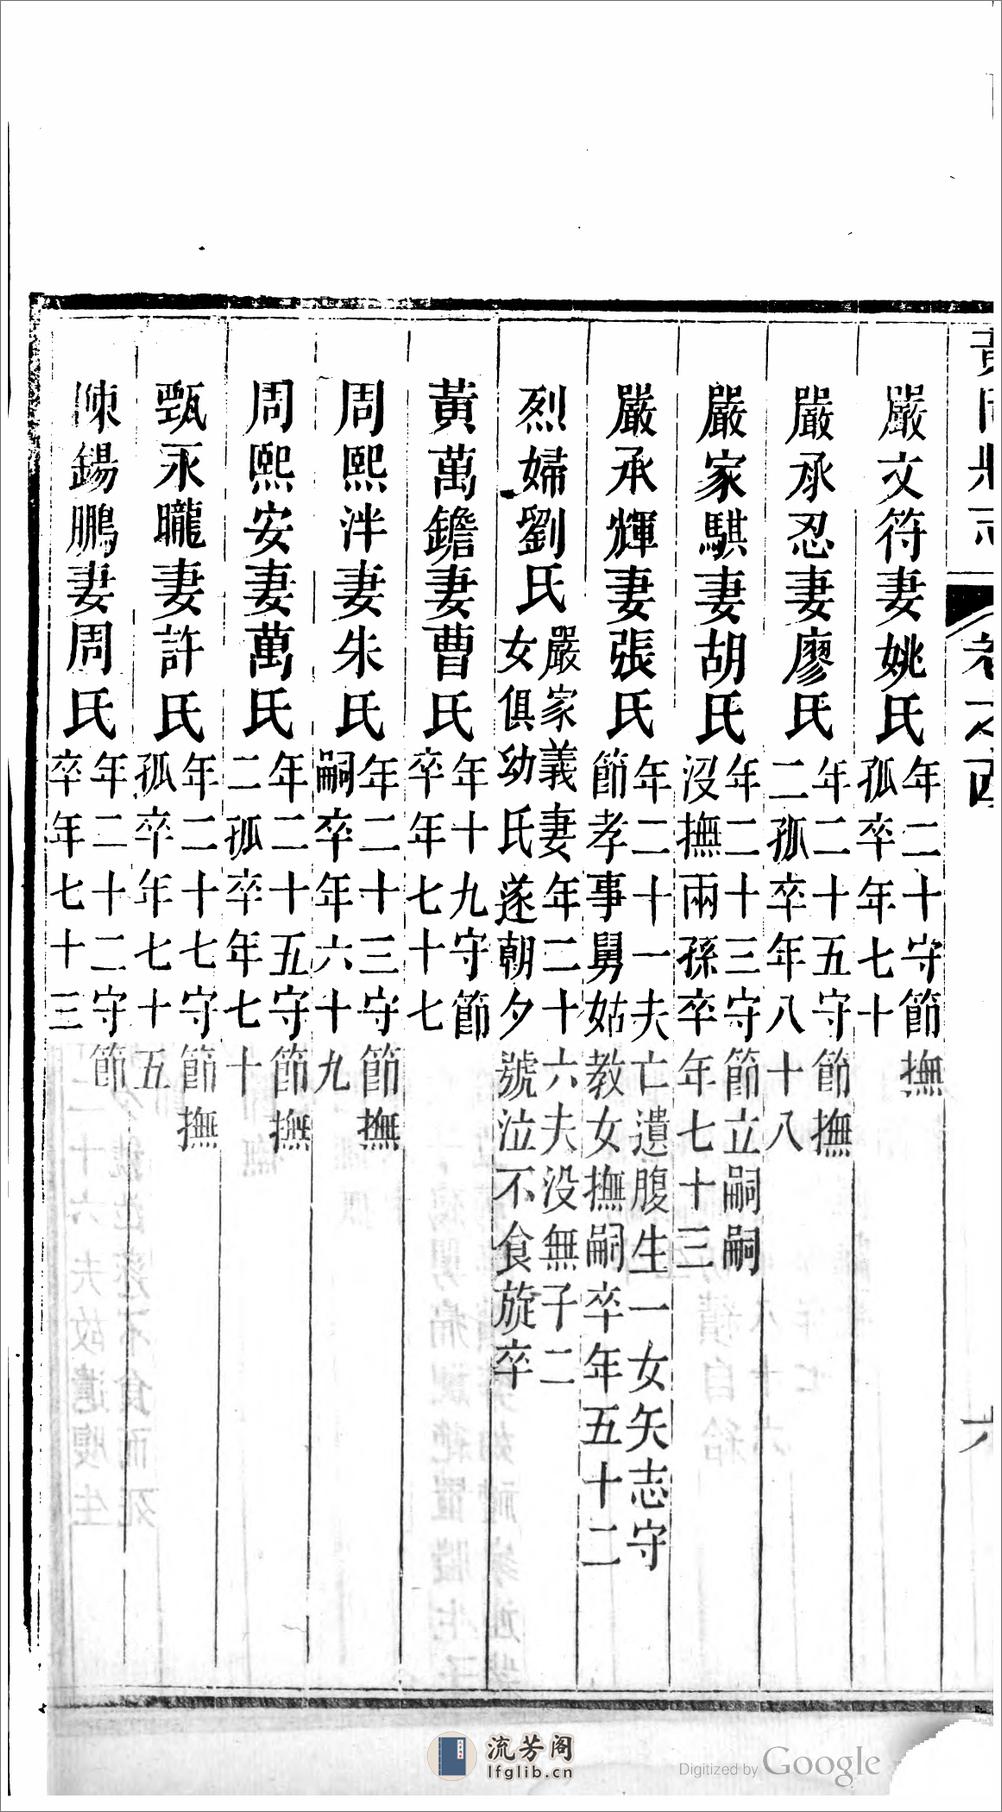 嚴文符妻姚氏年二十守節撫孤卒年七十
嚴承忍妻廖氏年二十五守節撫二孤卒年八十八
嚴家騏妻胡氏年二十三守節立嗣嗣沒撫兩孫卒年七十三
嚴承輝妻張氏年二十一夫亡遺腹生一女矢志守節孝事舅姑教女撫嗣卒年五十二
烈婦劉氏嚴家義妻年二十六夫没無子二女俱幼氏遂朝夕號泣不食旋卒
黃萬鑥妻曹氏年十九守節卒年七十七
周熙泮妻朱氏年二十三守節撫嗣卒年六十九
周熙安妻萬氏年二十五守節撫二孤卒年七十
甄永曨妻許氏年二十七守節撫孤卒年七十五
陳鍚鵬妻周氏年二十二守節卒年七十三
流芳阁
lfglib.cn
Digitized by Google